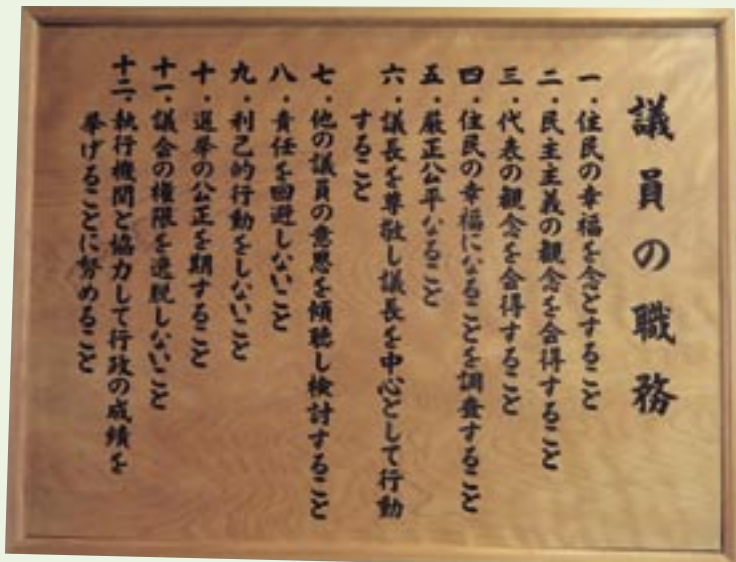 議員の職務
一．住民の幸福を念とすること
二．民主主義の観念を会得すること
三．代表の観念を会得すること
四．住民の幸福になることを調査すること
五．厳正公平なること
六．議長を尊敬し議長を中心として行動
すること
七．他の議員の意思を傾聴し検討すること
八．責任を回避しないこと
九．利己的行動をしないこと
十．選挙の公正を期すること
十一．議会の権限を逸脱しないこと
十二．執行機関と協力して行政の成績を
挙げることに努めること